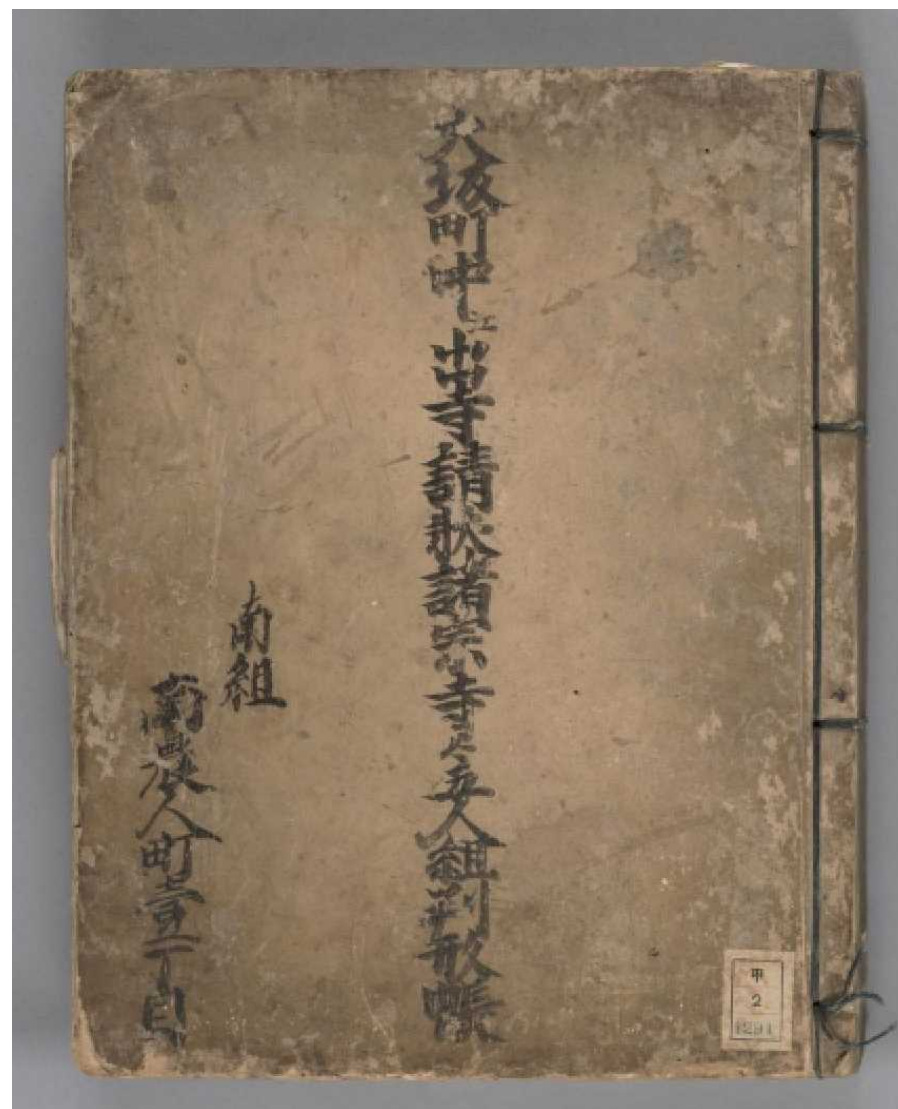 大坂町中江出寺請状諸宗寺五人組判形帳
南組
南農人町壹丁目
甲
2